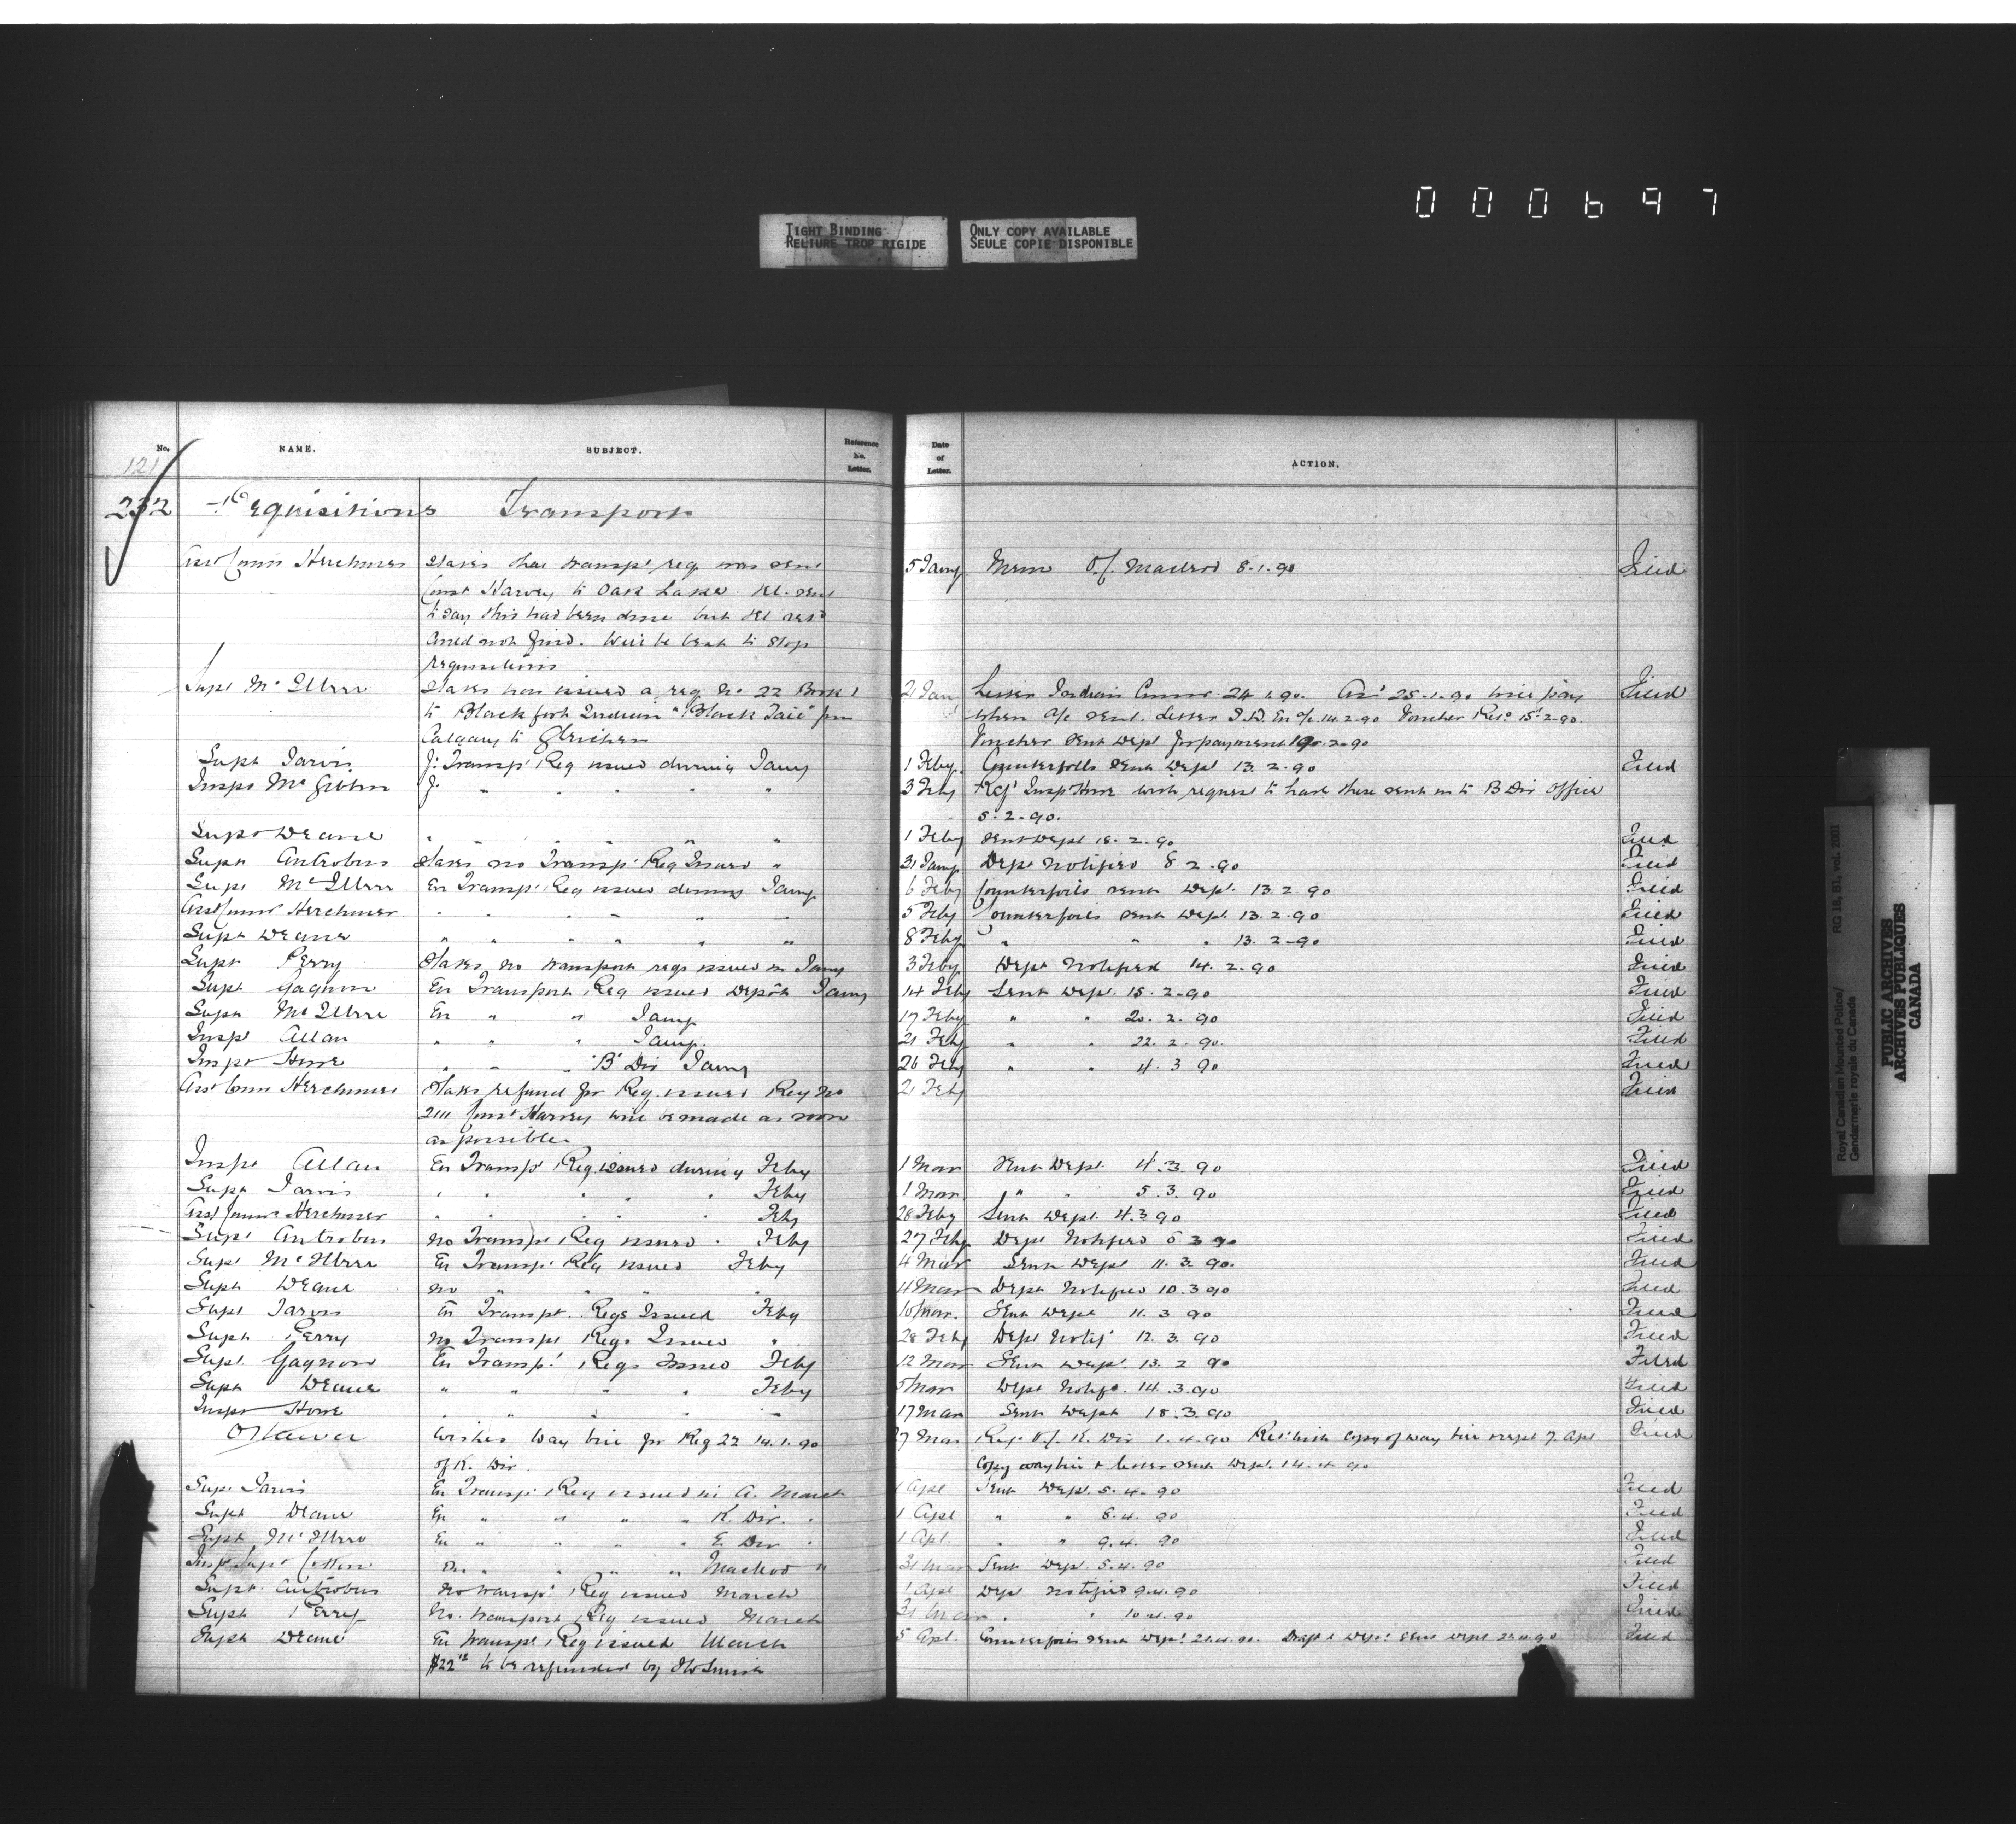 000697
TIGHT BINDING
RELIURE TROP RIGIDE
ONLY COPY AVAILABLE
SEULE COPIE DISPONIBLE
No. NAME. SUBJECT. Reference No. Letter. Date of Letter. ACTION.
121
232 Requisitions Transport
Asst Comr Herchmer States that transpt req. was sent 5 Jany Mem O/. Macleod 8.1.90 Filed
Const Harvey to Oak Lake.
to say this had been done but
not find. Will be to stop
requisitions
Supt McIllree States has issued a req No 22 Book 1 21 Jan Letter Indian Commr. 24.1.90. 25.1.90 will pay Filed
to Blackfoot Indian "Black Tail" from when a/c sent. Letter I.D. En a/c 14.2.90 Voucher Retd 15.2.90.
Calgary to Gleichen Voucher sent Dept for payment 19.2.90
Supt Jarvis J: Transpt Req issued during Jany 1 Feby. Counterfoils sent Dept 13.2.90 Filed
Inspr McGibbon J. " " " " " 3 Feby Refd Insp Howe with request to have these sent in to B Div Office
5.2.90.
Supt Deane " " " " " " 1 Feby sent Dept 18.2.90 Filed
Supt Antrobus States no Transpt Req Issued " 31 Jany Dept Notified 8.2.90 Filed
Supt McIllree En Transpt Req issued during Jany 6 Feby Counterfoils sent Dept. 13.2.90 Filed
Asst Comr Herchmer " " " " " 5 Feby Counterfoils sent Dept. 13.2.90 Filed
Supt Deane " " " " " " 8 Feby " " " 13.2.90 Filed
Supt Perry States no transport reqs issued in Jany 3 Feby Dept Notified 14.2.90 Filed
Supt Gagnon En Transport Req issued Depôt Jany 14 Feby Sent Dept. 15.2.90 Filed
Supt McIllree En " " Jany 17 Feby " " 20.2.90 Filed
Inspr Allan " " " Jany. 21 Feby " " 22.2.90. Filed
Inspr Howe " " " "B" Div Jany 26 Feby " " 4.3.90 Filed
Asst Comr Herchmer States refund for Req. issued Req No 21 Feby Filed
2111 Const Harvey will be made as soon
as possible.
Inspr Allan En Transpt Req. issued during Feby 1 Mar Sent Dept. 4.3.90 Filed
Supt Jarvis " " " " " Feby 1 Mar " " 5.3.90 Filed
Asst Comr Herchmer " " " " Feby 28 Feby Sent Dept. 4.3.90 Filed
Supt Antrobus No Transpt Req issued " Feby 27 Feby Dept Notified 5.3.90 Filed
Supt McIllree En Transpt Req issued Feby 4 Mar Sent Dept 11.3.90. Filed
Supt Deane No " " " " 4 Mar Dept Notified 10.3.90 Filed
Supt Jarvis En Transpt. Reqs Issued Feby 10 Mar. Sent Dept 11.3.90 Filed
Supt Perry No Transpt Reqs Issued " 28 Feby Dept Notifd 12.3.90 Filed
Supt. Gagnon En Transpt Reqs Issued Feby 12 Mar Sent Dept. 13.2.90 Filed
Supt Deane " " " " Feby 5 Mar Dept Notifd. 14.3.90 Filed
Inspr Howe " " " " " 17 Mar Sent Dept 18.3.90 Filed
Ottawa Wishes way bill for Req 22 14.1.90 27 Mar Req. O/. K. Div 1.4.90 Retd with copy of way bill 7 Apl Filed
of K. Div. Copy way bill & letter sent Dept. 14.4.90
Supt Jarvis En Transpt Req issued in A. March 1 Apl Sent Dept. 5.4.90 Filed
Supt Deane En " " " " K. Div. " 1 Apl " " 8.4.90 Filed
Supt McIllree En " " " " E. Div " 1 Apl. " " 9.4.90 Filed
Supt Cotton " " " " Macleod " 31 Mar Sent Dept. 5.4.90 Filed
Supt. Antrobus No transpt Req issued March 1 Apl Dept notified 9.4.90 Filed
Supt Perry No. transport Req issued March 31 Mar " " 10.4.90 Filed
Supt Deane En transpt Req issued March 5 Apl. Counterfoils sent Dept 21.4.90. Filed
$22 to be refunded by
Royal Canadian Mounted Police/ RG 18, B1, vol. 2001
Gendarmerie royale du Canada
PUBLIC ARCHIVES
ARCHIVES PUBLIQUES
CANADA